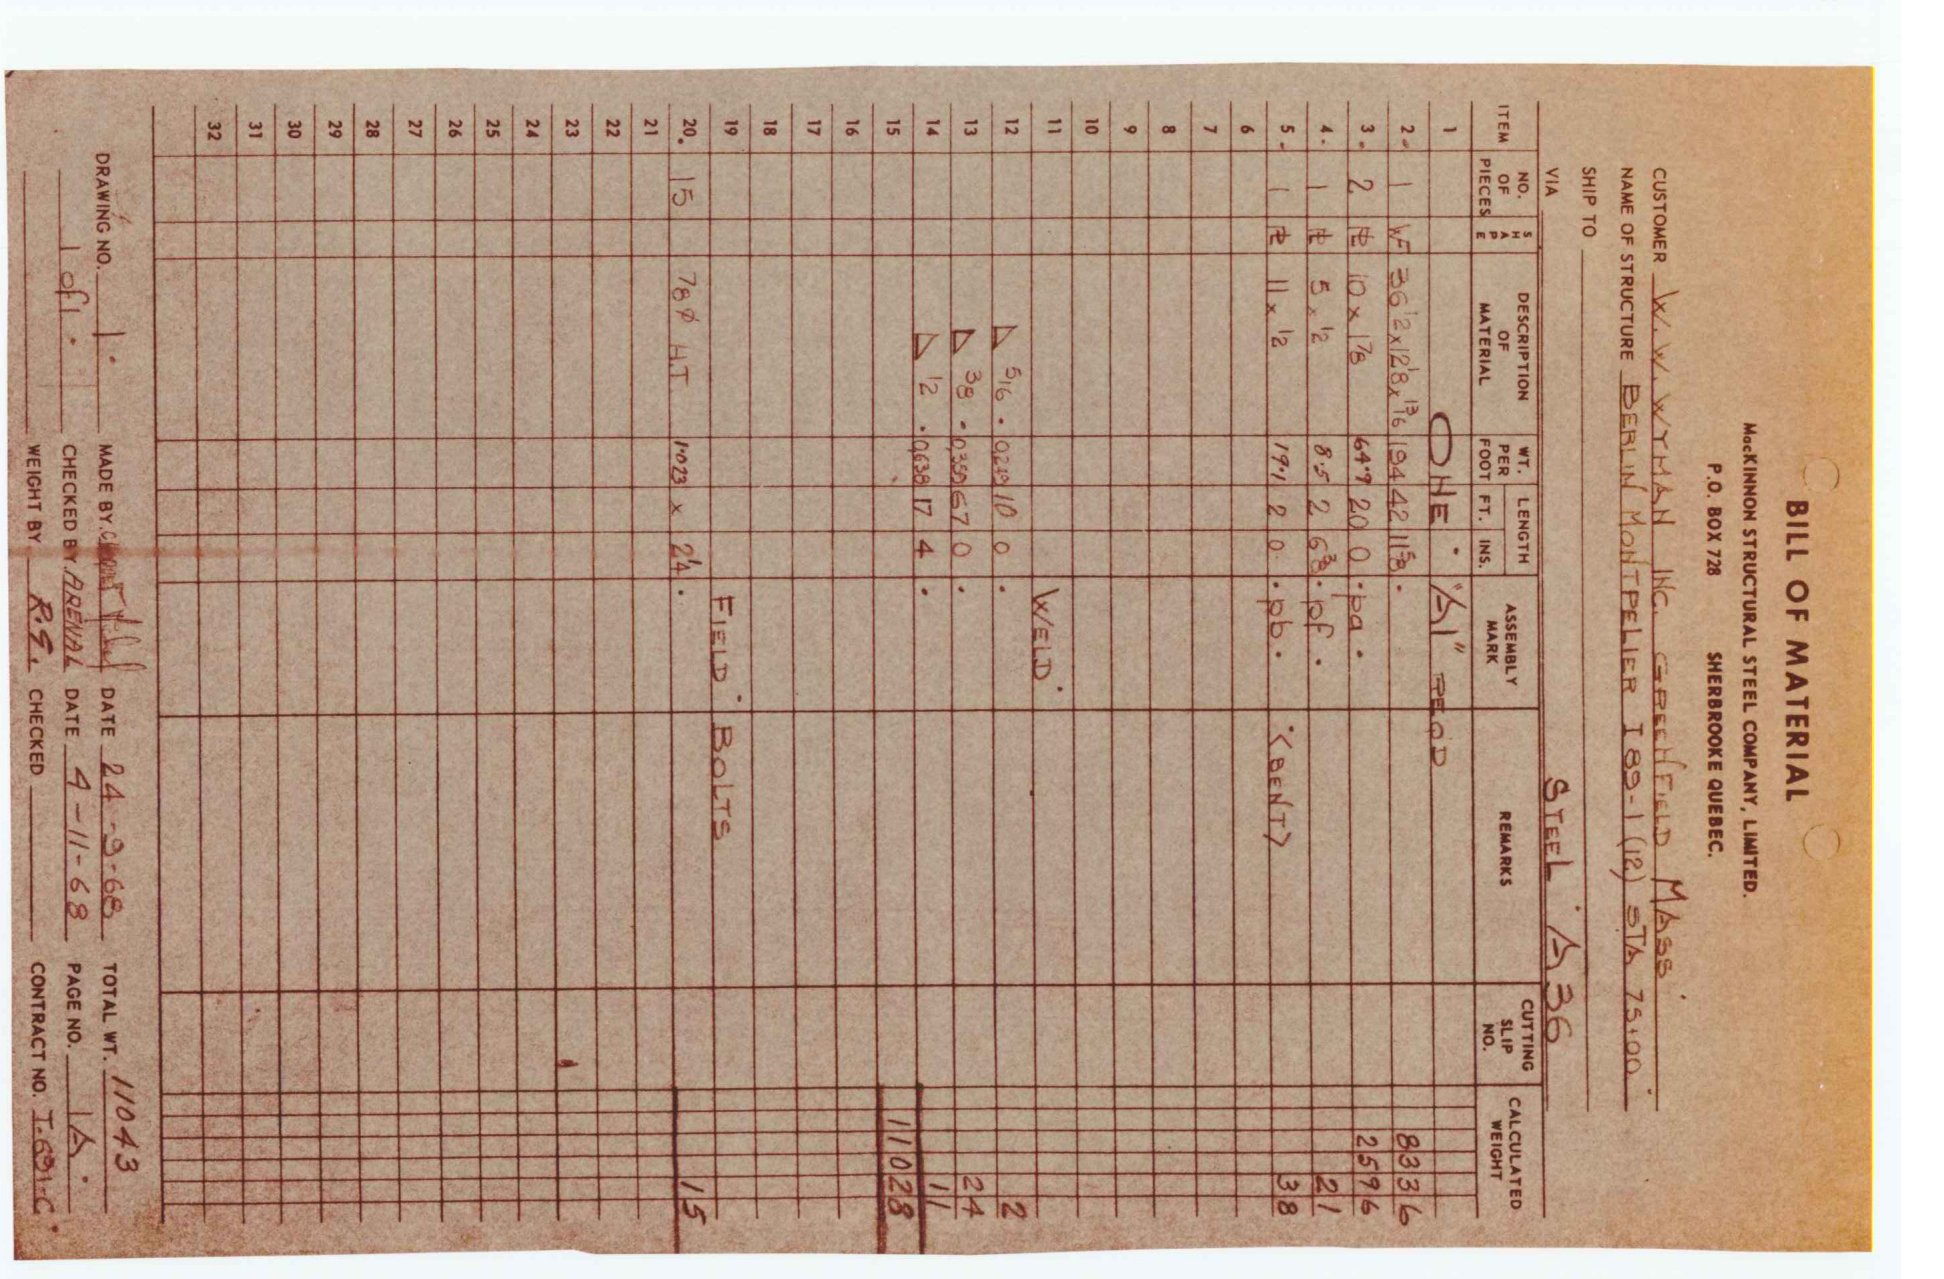 BILL OF MATERIAL
MacKINNON STRUCTURAL STEEL COMPANY, LIMITED.
P.O. BOX 728 SHERBROOKE QUEBEC.
CUSTOMER W.W. WYMAN INC. GREENFIELD MASS.
NAME OF STRUCTURE BERLIN MONTPELIER I 89-1 (12) STA 75+00
SHIP TO
VIA STEEL A36
ITEM NO. OF PIECES SHAPE DESCRIPTION OF MATERIAL WT. PER FOOT LENGTH FT. INS. ASSEMBLY MARK REMARKS CUTTING SLIP NO. CALCULATED WEIGHT
1 ONE . "A1" REQD
2. 1 WF 36 1/2 x 12 1/8 x 13/16 194 42 11 5/8 . 8336
3. 2 PL 10 x 1 7/8 64.9 20 0 . pa . 2596
4. 1 PL 5 x 1/2 8.5 2 6 3/8 . pf . 21
5. 1 PL 11 x 1/2 19.1 2 0 . pb . (BENT) 38
6
7
8
9
10
11 WELD.
12 5/16 . 0.249 10 0 . 2
13 3/8 . 0.359 67 0 . 24
14 1/2 . 0.638 17 4 . 11
15 11028
16
17
18
19 FIELD BOLTS
20. 15 7/8 Ø H.T 1.023 x 2 1/4 . 15
21
22
23
24
25
26
27
28
29
30
31
32
DRAWING NO. 1. MADE BY. DATE 24-9-68 TOTAL WT. 11043
1 of 1. CHECKED BY ARENAL DATE 4-11-68 PAGE NO. 1A.
WEIGHT BY R.G. CHECKED CONTRACT NO. T-691-C.